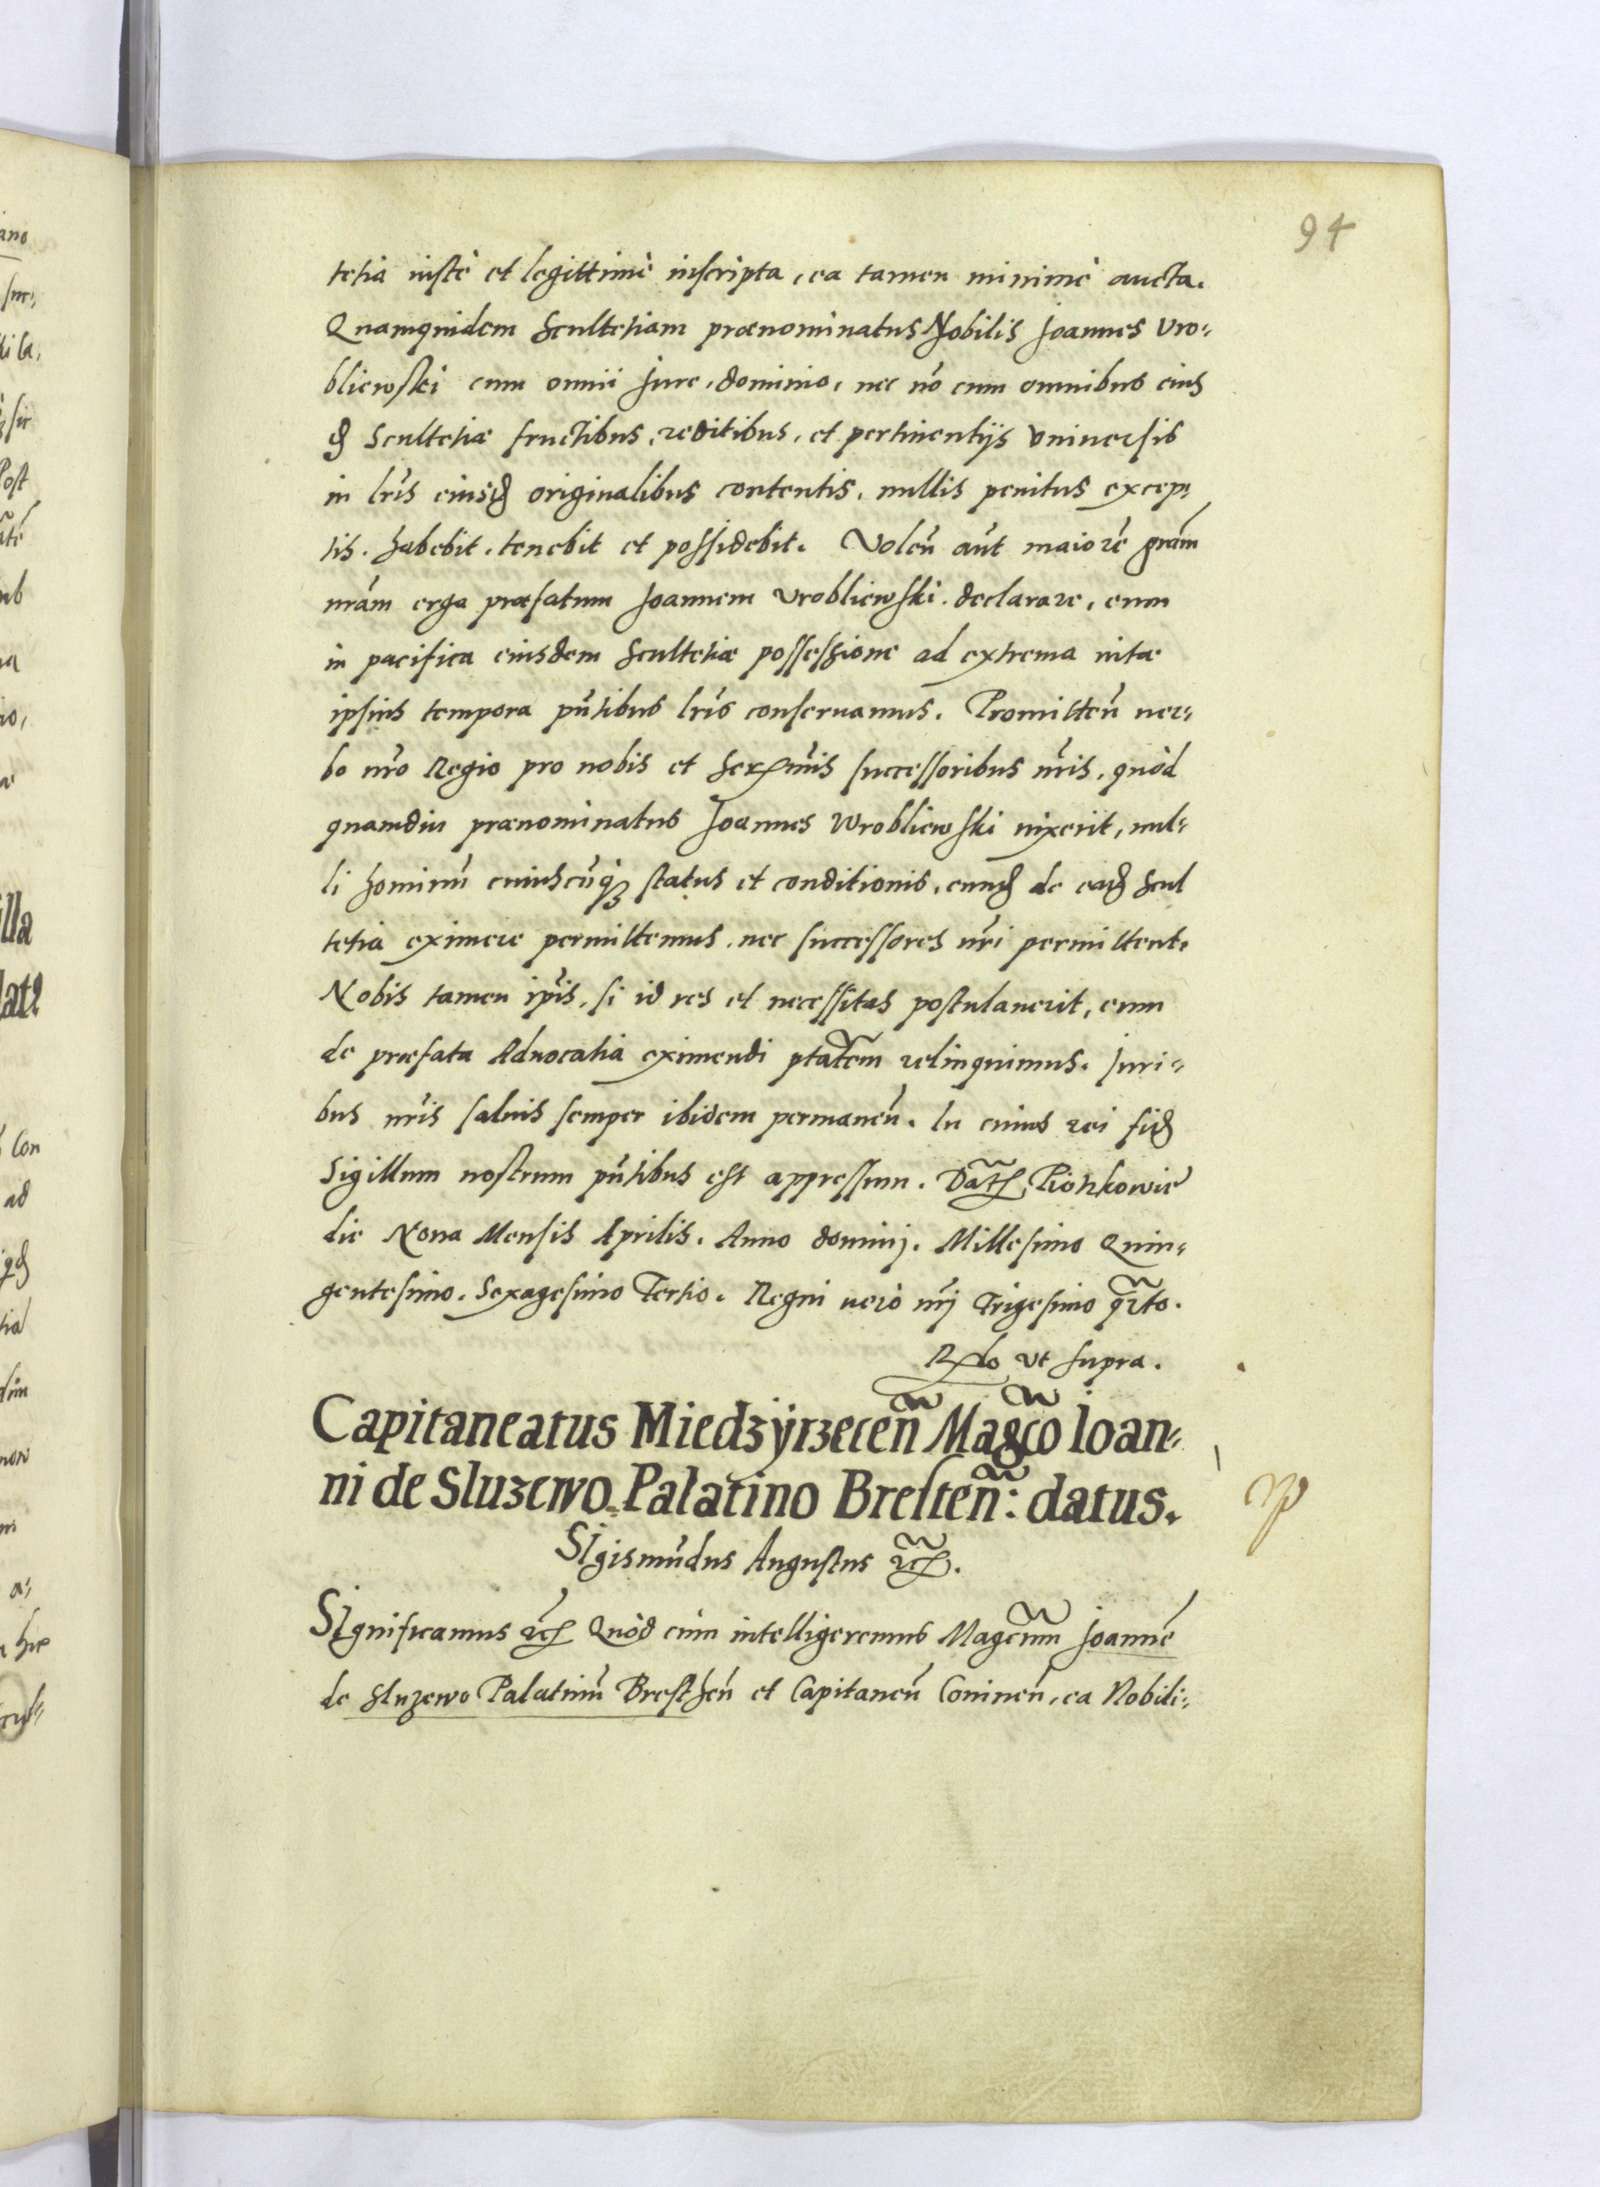 94
tetia iustè et legittimè inscripta, ea tamen minimè aucta.
Quamquidem Scultetiam prænominatus Nobilis Joannes Vro-
bliewski cum omnii Jure, dominio, nec nō cum omnibus eius
ꝺ Scultetiæ fructibus, reditibus, et pertinentijs Vniuersis
in lr̄is eiusꝺ originalibus contentis, nullis penitus excep-
tis. habebit, tenebit et possidebit. Volen̄ aūt maiorē gr̄am
nr̄am erga præfatum Joannem Vrobliewski declarare, eum
in pacifica eiusdem Scultetiæ possessione ad extrema uitæ
ipsius tempora pn̄tibus lr̄is conseruamus. Promitten̄ uer-
bo nr̄o Regio pro nobis et Serx̄mis successoribus nr̄is, quòd
quamdiu prænominatus Joannes Wrobliewski uixerit, nul-
li hominū cuiuscūqꝫ status et conditionis, eunꝺ de eaꝺ Scul
tetia eximere permittemus, nec successores nr̄i permittent.
Nobis tamen ip̄is, si id res et necessitas postulauerit, eum
de præfata Aduocatia eximendi ptātem relinquimus. Juri-
bus nr̄is saluis semper ibidem permanen̄. In cuius rei fiꝺ
Sigillum nostrum pn̄tibus est appressum. Dat̄ Piotrkowiē
die Nona Mensis Aprilis. Anno dominj. Millesimo Quin-
gentesimo. Sexagesimo Tertio. Regni uerò nr̄j Trigesimo qr̄to.
Rlo Vt supra.
Capitaneatus Miedzÿrzecen̄ Magc̄o Ioan-
ni de Sluzewo Palatino Bresten̄: datus.
SIgismūdus Augustus ꝛc̄.
SIgnificamus ꝛc̄ Quòd cùm intelligeremus Magc̄um Joannē
de Sluzewo Palatinū Bresthen̄ et Capitaneū Coninen̄, ea Nobili-